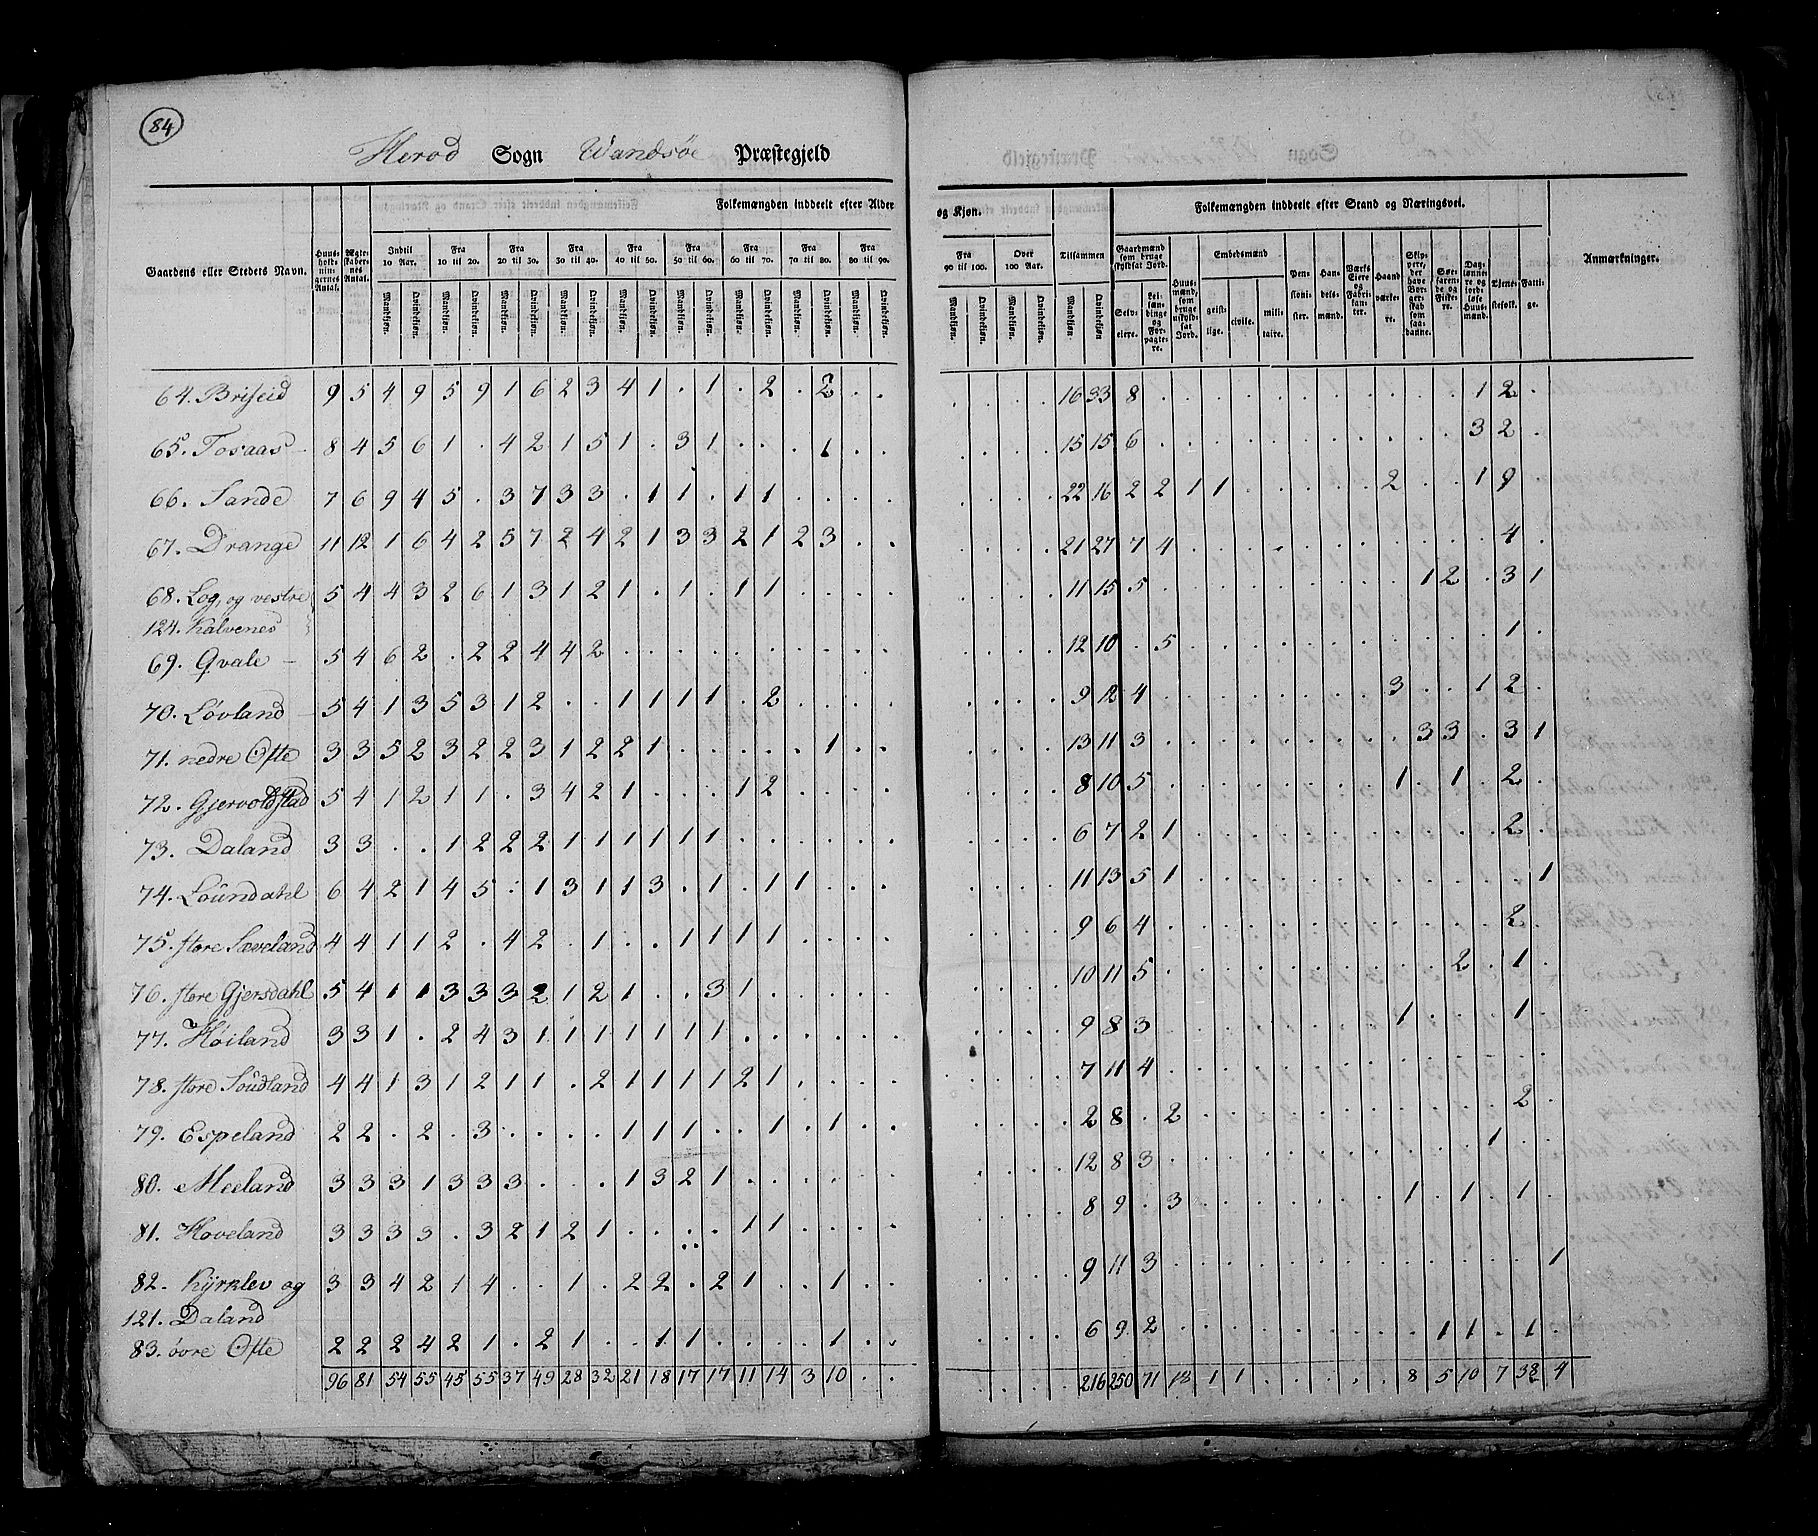 84
Herod Sogn Wandsøe Præstegjeld
Folkemængden inddeelt efter Alder og Kjøn.
Folkemængden inddeelt efter Stand og Næringsvei.
Gaardens eller Stedets Navn.
Huus-holdnin-gernes Antal.
Ægte-skaber-nes Antal.
Indtil 10 Aar.
Fra 10 til 20.
Fra 20 til 30.
Fra 30 til 40.
Fra 40 til 50.
Fra 50 til 60.
Fra 60 til 70.
Fra 70 til 80.
Fra 80 til 90.
Fra 90 til 100.
Over 100 Aar.
Tilsammen
Mandkjøn. Qvindekjøn.
Gaardmænd som bruge skyldsat Jord.
Selv-eiere.
Lei-læn-dinge og For-pagte-re.
Huus-mænd, som bruge uskyld-sat Jord.
Embedsmænd
geist-lige. civile. mili-taire.
Pen-sioni-ster.
Han-dels-mænd.
Værks Eiere og Fabri-kan-ter.
Haand-værke-re.
Skip-pere, der have Bor-ger-skab som saa-danne.
Søe-faren-de og Fiske-re.
Dag-lønne-re og jord-løse Huus-mænd.
Tjene-stefolk.
Fatti-ge.
Anmærkninger.
64. Briseid 9 5 4 9 5 9 1 6 2 3 4 1 . 1 . 2 . 2 . . . . . . 16 33 8 . . . . . . . . . . . 1 2 .
65. Tosaas 8 4 5 6 1 . 4 2 1 5 1 . 3 1 . . . 1 . . . . . . 15 15 6 . . . . . . . . . . . 3 2 .
66. Sande 7 6 9 4 5 . 3 7 3 3 . 1 1 . 1 1 . . . . . . . . 22 16 2 2 1 1 . . . . . 2 . . 1 9 .
67. Drange 11 12 1 6 4 2 5 7 2 4 2 1 3 3 2 1 2 3 . . . . . . 21 27 7 4 . . . . . . . . . . . 4 .
68. Log, og vestre 5 4 4 3 2 6 1 3 1 2 1 . 1 . 1 1 . . . . . . . . 11 15 5 . . . . . . . . . 1 2 . 3 1
124. Kalvenes
69. Qvale 5 4 6 2 . 2 2 4 4 2 . . . . . . . . . . . . . . 12 10 . 5 . . . . . . . . . . . 1 .
70. Løvland 5 4 1 3 5 3 1 2 . . 1 1 1 1 . 2 . . . . . . . . 9 12 4 . . . . . . . . 3 . . 1 2 .
71. nedre Ofte 3 3 5 2 3 2 2 3 1 2 2 1 . . . . . 1 . . . . . . 13 11 3 . . . . . . . . . 3 3 . 3 1
72. Gjervoldstad 5 4 1 2 1 1 . 3 4 2 1 . . . 1 2 . . . . . . . . 8 10 5 . . . . . . . . 1 . 1 . 2 .
73. Daland 3 3 . . 1 2 2 2 1 1 1 1 1 1 . . . . . . . . . . 6 7 2 1 . . . . . . . . . . . 2 .
74. Loundahl 6 4 2 1 4 5 . 1 3 1 1 3 . 1 . 1 1 . . . . . . . 11 13 5 1 . . . . . . . . . . . . 1
75. store Sæveland 4 4 1 1 2 . 4 2 . 1 . . 1 1 1 1 . . . . . . . . 9 6 4 . . . . . . . . . . . . 2 .
76. store Gjersdahl 5 4 1 1 3 3 3 2 1 2 1 . . 3 1 . . . . . . . . . 10 11 5 . . . . . . . . . . 2 . 1 .
77. Høiland 3 3 1 . 2 4 3 1 1 1 1 1 1 1 . . . . . . . . . . 9 8 3 . . . . . . . . 1 . . . 1 .
78. store Soudland 4 4 1 3 1 2 1 1 . 2 1 1 1 1 2 1 . . . . . . . . 7 11 4 . . . . . . . . . . . . . .
79. Espeland 2 2 . 2 . 3 . . . . 1 1 1 . . 1 . 1 . . . . . . 2 8 . 2 . . . . . . . . . . . 2 .
80. Meeland 3 3 3 1 3 3 3 . . . 1 3 2 1 . . . . . . . . . . 12 8 3 . . . . . . . . . . . 1 . .
81. Hoveland 3 3 3 3 . 3 2 1 2 1 . . . . 1 1 . . . . . . . . 8 9 . 3 . . . . . . . 1 . 1 . 1 .
82. Kyrklev og 3 3 4 2 1 4 . . 1 . 2 2 . 2 1 . . 1 . . . . . . 9 11 3 . . . . . . . . . . . . . 1
121. Daland
83. övre Ofte 2 2 2 4 2 1 . 2 1 . . 1 1 . . . . 1 . . . . . . 6 9 2 . . . . . . . . . 1 1 . 1 .
96 81 54 55 45 55 37 49 28 32 21 18 17 17 11 14 3 10 . . . . . . 216 250 71 18 1 1 . . . . . 8 5 10 7 38 4